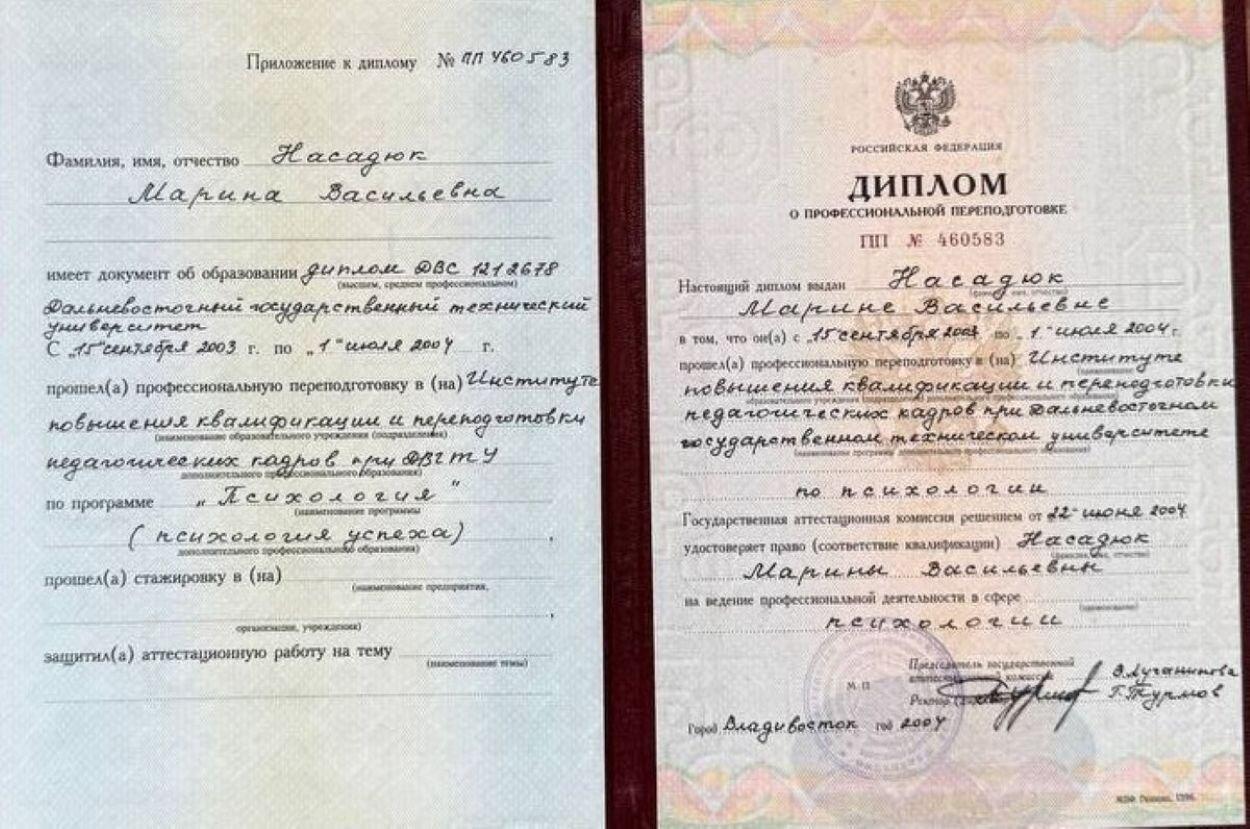 Приложение к диплому № ПП 460583
Фамилия, имя, отчество Насадюк
Марина Васильевна
имеет документ об образовании диплом ДВС 1212678
(высшем, среднем профессиональном)
Дальневосточный государственный технический
университет
С „15" сентября 2003 г. по „1" июля 2004 г.
прошел(а) профессиональную переподготовку в (на) Институте
повышения квалификации и переподготовки
(наименование образовательного учреждения (подразделения)
педагогических кадров при ДВГТУ
дополнительного профессионального образования)
по программе „Психология"
(наименование программы
(психология успеха) ,
дополнительного профессионального образования)
прошел(а) стажировку в (на)
(наименование предприятия,
,
организации, учреждения)
защитил(а) аттестационную работу на тему
(наименование темы)
РОССИЙСКАЯ ФЕДЕРАЦИЯ
ДИПЛОМ
О ПРОФЕССИОНАЛЬНОЙ ПЕРЕПОДГОТОВКЕ
ПП № 460583
Настоящий диплом выдан Насадюк
(фамилия, имя, отчество)
Марине Васильевне
в том, что он(а) с „15 сентября 2003 по „1" июля 2004 г.
прошел(а) профессиональную переподготовку в (на) Институте
(наименование
повышения квалификации и переподготовки
образовательного учреждения (подразделения) дополнительного профессионального образования)
педагогических кадров при Дальневосточном
государственном техническом университете
(наименование программы дополнительного профессионального образования)
по психологии
Государственная аттестационная комиссия решением от 22 июня 2004
удостоверяет право (соответствие квалификации) Насадюк
(фамилия, имя, отчество)
Марины Васильевны
на ведение профессиональной деятельности в сфере
(наименование)
психологии
Председатель государственной
аттестационной комиссии Э.Лучанинова
М. П.
Ректор Г.Турмов
Город Владивосток год 2004